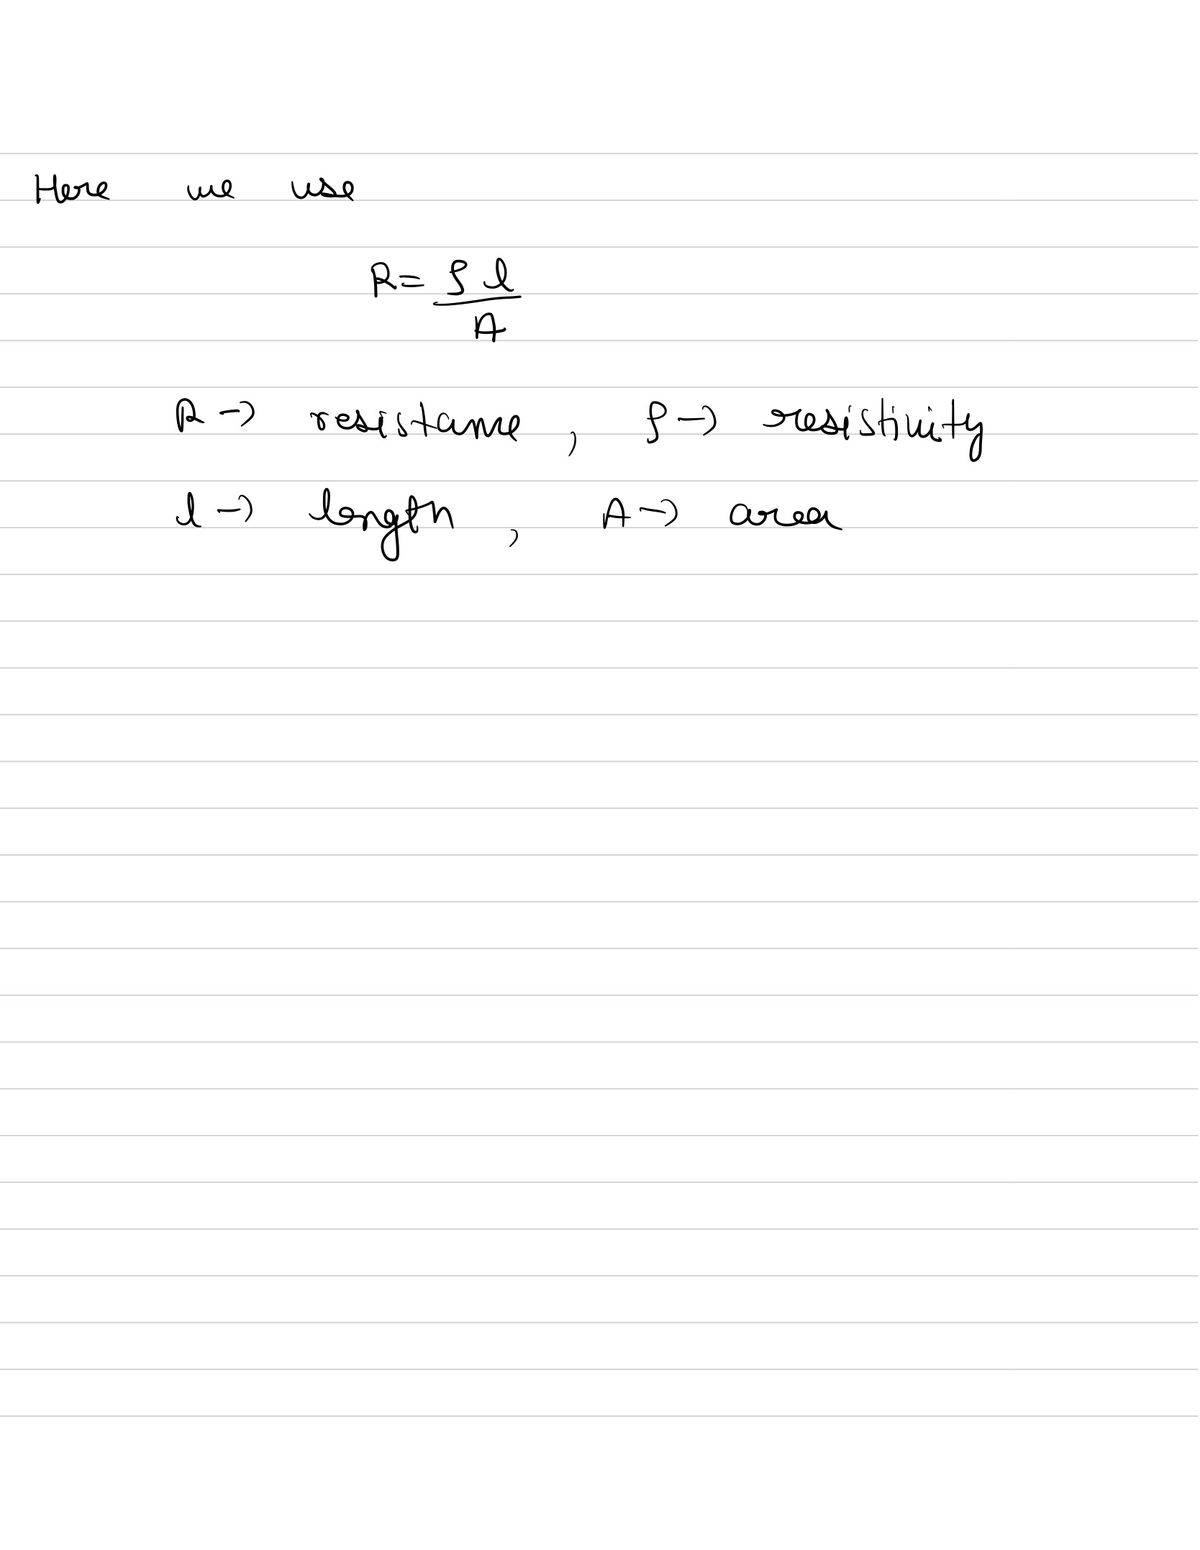 Here we use
R = ρ l
A
R → resistance , ρ → resistivity
l → length , A → area